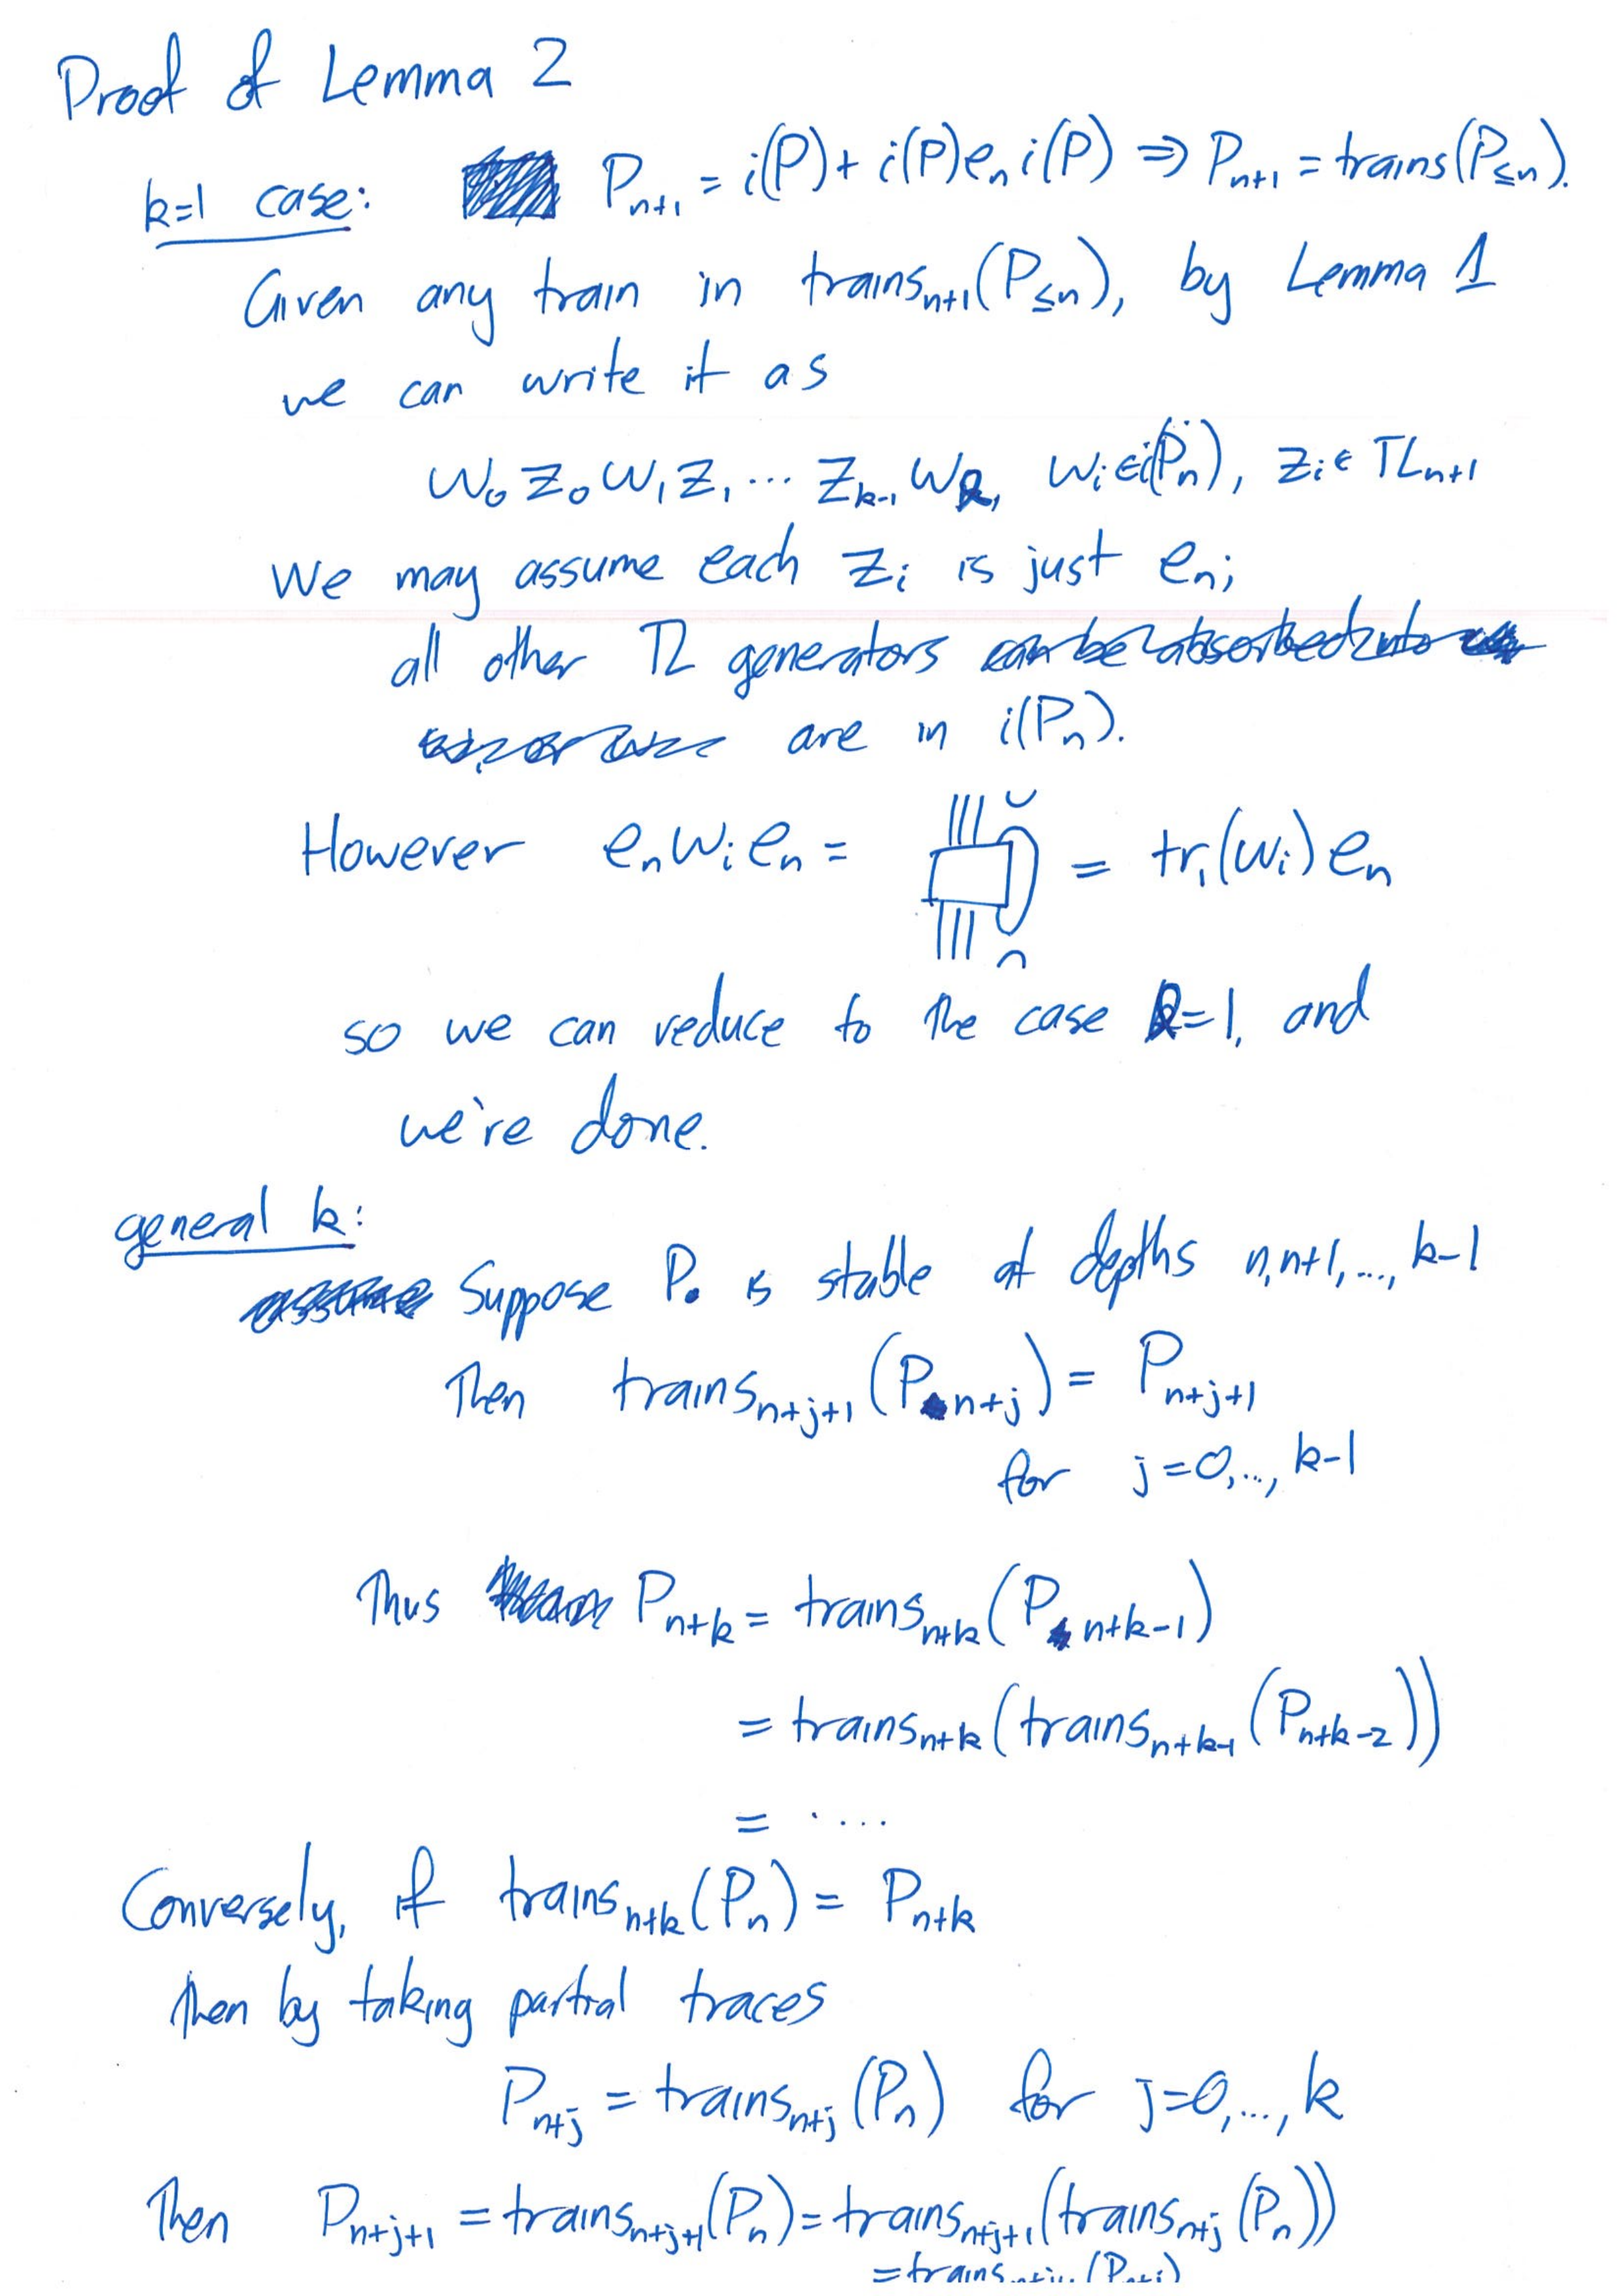 Proof of Lemma 2
k=1 case: P_{n+1} = i(P) + i(P)e_n i(P) ⇒ P_{n+1} = trains(P_{≤n}).
Given any train in trains_{n+1}(P_{≤n}), by Lemma 1
we can write it as
w_0 z_0 w_1 z_1 ... z_{k-1} w_k, w_i ∈ i(P_n), z_i ∈ TL_{n+1}
We may assume each z_i is just e_n;
all other TL generators can be absorbed into
are in i(P_n).
However e_n w_i e_n = = tr_1(w_i) e_n
so we can reduce to the case k=1, and
we're done.
general k:
assume Suppose P_• is stable at depths n, n+1, ..., k-1
Then trains_{n+j+1}(P_{n+j}) = P_{n+j+1}
for j=0, ..., k-1
Thus P_{n+k} = trains_{n+k}(P_{n+k-1})
= trains_{n+k}(trains_{n+k-1}(P_{n+k-2}))
= ....
Conversely, if trains_{n+k}(P_n) = P_{n+k}
then by taking partial traces
P_{n+j} = trains_{n+j}(P_n) for j=0, ..., k
Then P_{n+j+1} = trains_{n+j+1}(P_n) = trains_{n+j+1}(trains_{n+j}(P_n))
= trains_{n+j+1}(P_{n+j})